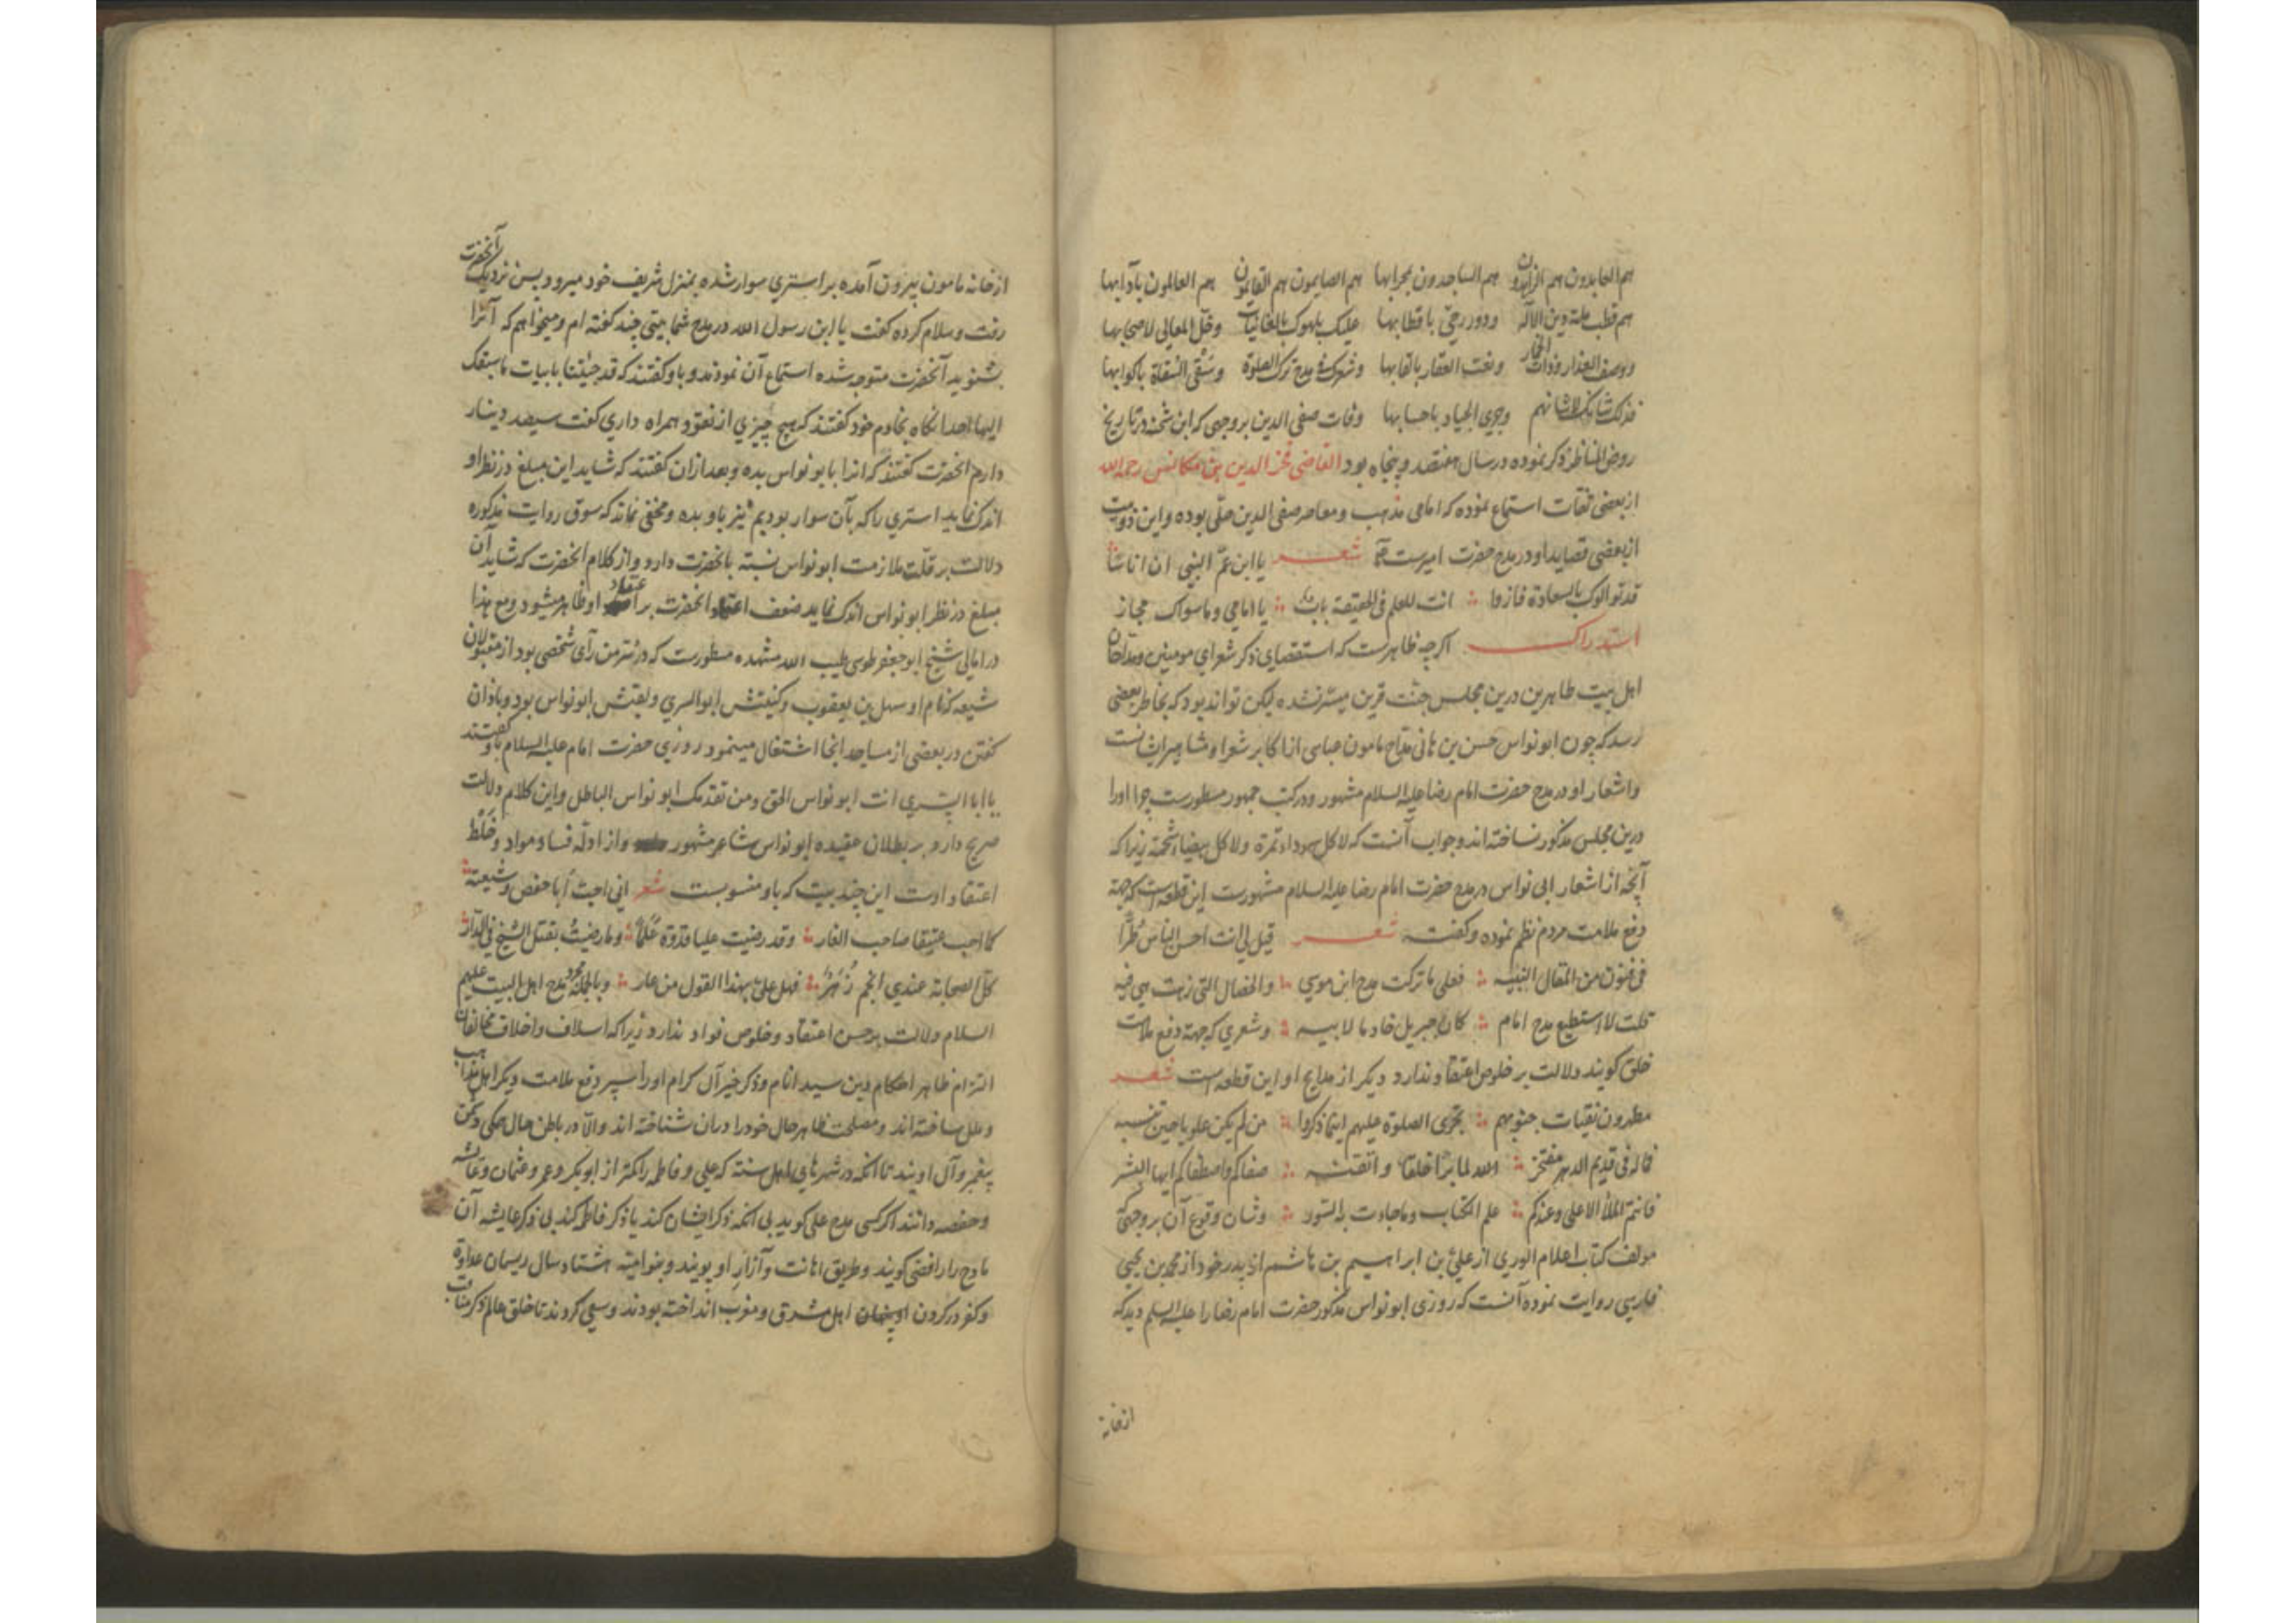 هم العابدون هم الزاهدون هم الساجدون بمحرابها هم الصایمون هم القایمون هم العالمون بآدابها
هم قطب ملة دین الآله ودور رحی باقطابها علیک بلهوک بالغانیات وخلّ المعالی لاصحابها
ووصف العذار وذات الخمار ونعت العقار بالقابها وشعرک فی مدح ترک الصلوة وسقی السقاة باکوابها
فذلک شانک لا شانهم وجری الجیاد باحسابها وفات صفی الدین بروجهی که ابن شحنه در تاریخ
روض المناظر ذکر نموده در سال هفتصد و پنجاه بود القاضی فخر الدین بن مکانس رحمه الله
از بعضی ثقات استماع نموده که امامی مذهب ومعاصر صفی الدین حلّی بوده و این دو بیت
از بعضی قصاید او در مدح حضرت امیرست شعر یا ابن عمّ النبی ان اناسًا
قد توالوک بالسعادة فازوا انت للعلم فی الحقیقة باب یا امامی وما سواک مجاز
استدراک اکرچه ظاهرست که استقصای ذکر شعرای مومنین ومداحان
اهل بیت طاهرین درین مجلس جنّت قرین میسّر نشده لیکن تواند بود که بخاطر بعضی
رسد که چون ابونواس حسن بن هانی مدّاح مامون عباسی از اکابر شعرا ومشاهیر ایشانست
واشعار او در مدح حضرت امام رضا علیه السلام مشهور ودر کتب جمهور مسطورست چرا اورا
درین مجلس مذکور نساخته اند وجواب آنست که لا کل سوداء تمرة ولا کل بیضاء شحمة زیرا که
آنچه از اشعار ابی نواس در مدح حضرت امام رضا علیه السلام مشهورست این قطعه است که جهة
دفع ملامت مردم نظم نموده وکفته شعر قیل لی انت احسن الناس طرًّا
فی فنون من المقال النبیه فعلی ما ترکت مدح ابن موسی والخصال التی تجمعن فیه
قلت لا استطیع مدح امام کان جبریل خادما لابیه وشعری که جهة دفع ملامت
خلق کویند دلالت بر خلوص اعتقاد ندارد دیکر از مدایح او این قطعه است شعر
مطهرون نقیات جیوبهم تجری الصلوة علیهم اینما ذکروا من لم یکن علویا حین تنسبه
فماله فی قدیم الدهر مفتخر الله لما برا خلقا واتقنه صفاکم واصطفاکم ایها البشر
فانتم الملأ الاعلی وعندکم علم الکتاب وما جاءت به السور وشان وقوع آن بروجهی که
مولف کتاب اعلام الوری از علی بن ابراهیم بن هاشم از پدر خود از محمد بن یحیی
فارسی روایت نموده آنست که روزی ابونواس مذکور حضرت امام رضا را علیه السلم دید که
ازخانه
از خانه مامون بیرون آمده بر استری سوار شده بمنزل شریف خود میرود پس نزدیک آنحضرت
رفت وسلام کرده کفت یا ابن رسول الله در مدح شما بیتی چند کفته ام ومیخواهم که آنرا
بشنوید آنحضرت متوجه شده استماع آن نمودند وباو کفتند که قد جئتنا بابیات ما سبقک
الیها احد آنکاه بخادم خود کفتند که هیچ چیزی از نقود همراه داری کفت سیصد دینار
دارم آنحضرت کفتند که انرا بابونواس بده وبعد ازان کفتند که شاید این مبلغ در نظر او
اندک نماید استری را که بآن سوار بودیم نیز باو بده ومخفی نماند که سوق روایت مذکوره
دلالت بر قلّت ملازمت ابونواس نسبة بآنحضرت دارد واز کلام آنحضرت که شاید آن
مبلغ در نظر ابونواس اندک نماید ضعف اعتماد آنحضرت بر اعتقاد او ظاهر میشود ومع هذا
در امالی شیخ ابو جعفر طوسی طیب الله مشهده مسطورست که در سرّ من رآی شخصی بود از مقبولان
شیعه که نام او سهل بن یعقوب وکنیتش ابو السری ولقبش ابونواس بود وباذان
کفتن در بعضی از مساجد انجا اشتغال مینمود روزی حضرت امام علیه السلام باو کفتند
یا ابا السری انت ابونواس الحق ومن تقدمک ابونواس الباطل واین کلام دلالت
صریح دارد بر بطلان عقیده ابونواس شاعر مشهور واز ادلّه فساد مواد وخلط
اعتقاد اوست این چند بیت که باو منسوبست شعر انی احب أبا حفص وشیعته
کما احب عتیقا صاحب الغار وقد رضیت علیا قدوة عَلَمًا وما رضیتُ بقتل الشیخ فی الدار
کل الصحابة عندی انجم زُهُر فهل علیّ بهذا القول من عار وبالجمله مجرد مدح اهل البیت علیهم
السلام دلالت بر حسن اعتقاد وخلوص فواد ندارد زیرا که اسلاف واخلاف مخالفان
التزام ظاهر احکام دین سید انام وذکر خیر آل کرام اورا سپر دفع ملامت دیکر اهل مذاهب
وملل ساخته اند ومصلحت ظاهر حال خود را دران شناخته اند والّا در باطن
پیغمبر وآل اویند تا آنکه در شهرهای اهل سنته که علی وفاطمه را کمتر از ابوبکر وعمر وعثمان وعایشه
وحفصه دانند اکر کسی مدح علی کوید بی آنکه ذکر ایشان کند یا ذکر فاطمه کند بی ذکر عایشه آن
مادح را رافضی کویند وطریق اهانت وآزار او پویند وبنو امیّه هشتاد سال ریسمان عداوة
وکفر در کردن اهل مشرق ومغرب انداخته بودند وسعی کردند تا خلق عالم ذکر مناقب